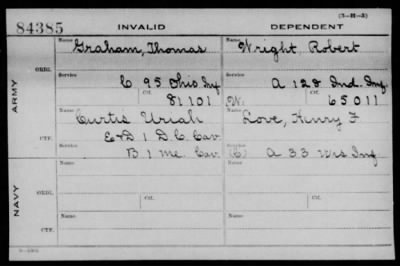 (3-H-3)
84385 INVALID DEPENDENT
Name Graham, Thomas Name Wright, Robert
ARMY
ORIG.
Service C 95 Ohio Inf Service A 128 Ind. Inf.
Ctf. 81101 W. Ctf. 65011
CTF.
Name Curtis Uriah Name Love, Henry F
E & D 1 D.C. Cav
B 1 Me. Cav. (C) A 33 Wis Inf.
NAVY
ORIG.
Name Ctf. Name Ctf.
CTF.
Name Name